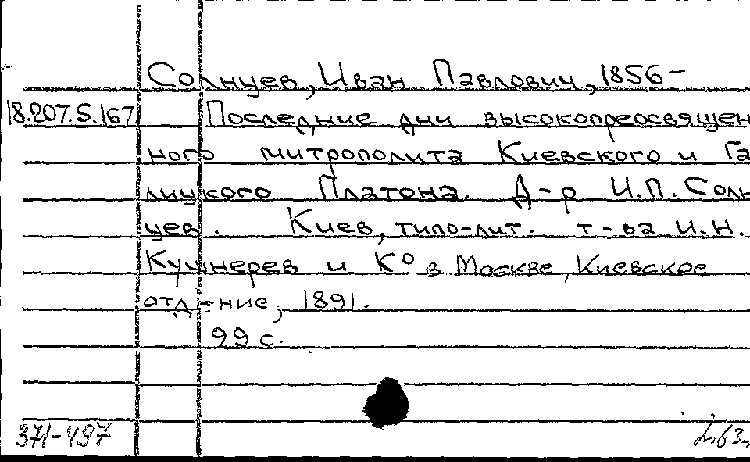 Солнцев, Иван Павлович, 1856-
18.207.5.167 Последние дни высокопреосвящен
ного митрополита Киевского и Га
лицкого Платона. Д-р И.П. Солн
цев. Киев, типо-лит. т-ва И.Н.
Кушнерев и К° в Москве, Киевское
отд-ние, 1891.
99 с.
371-497